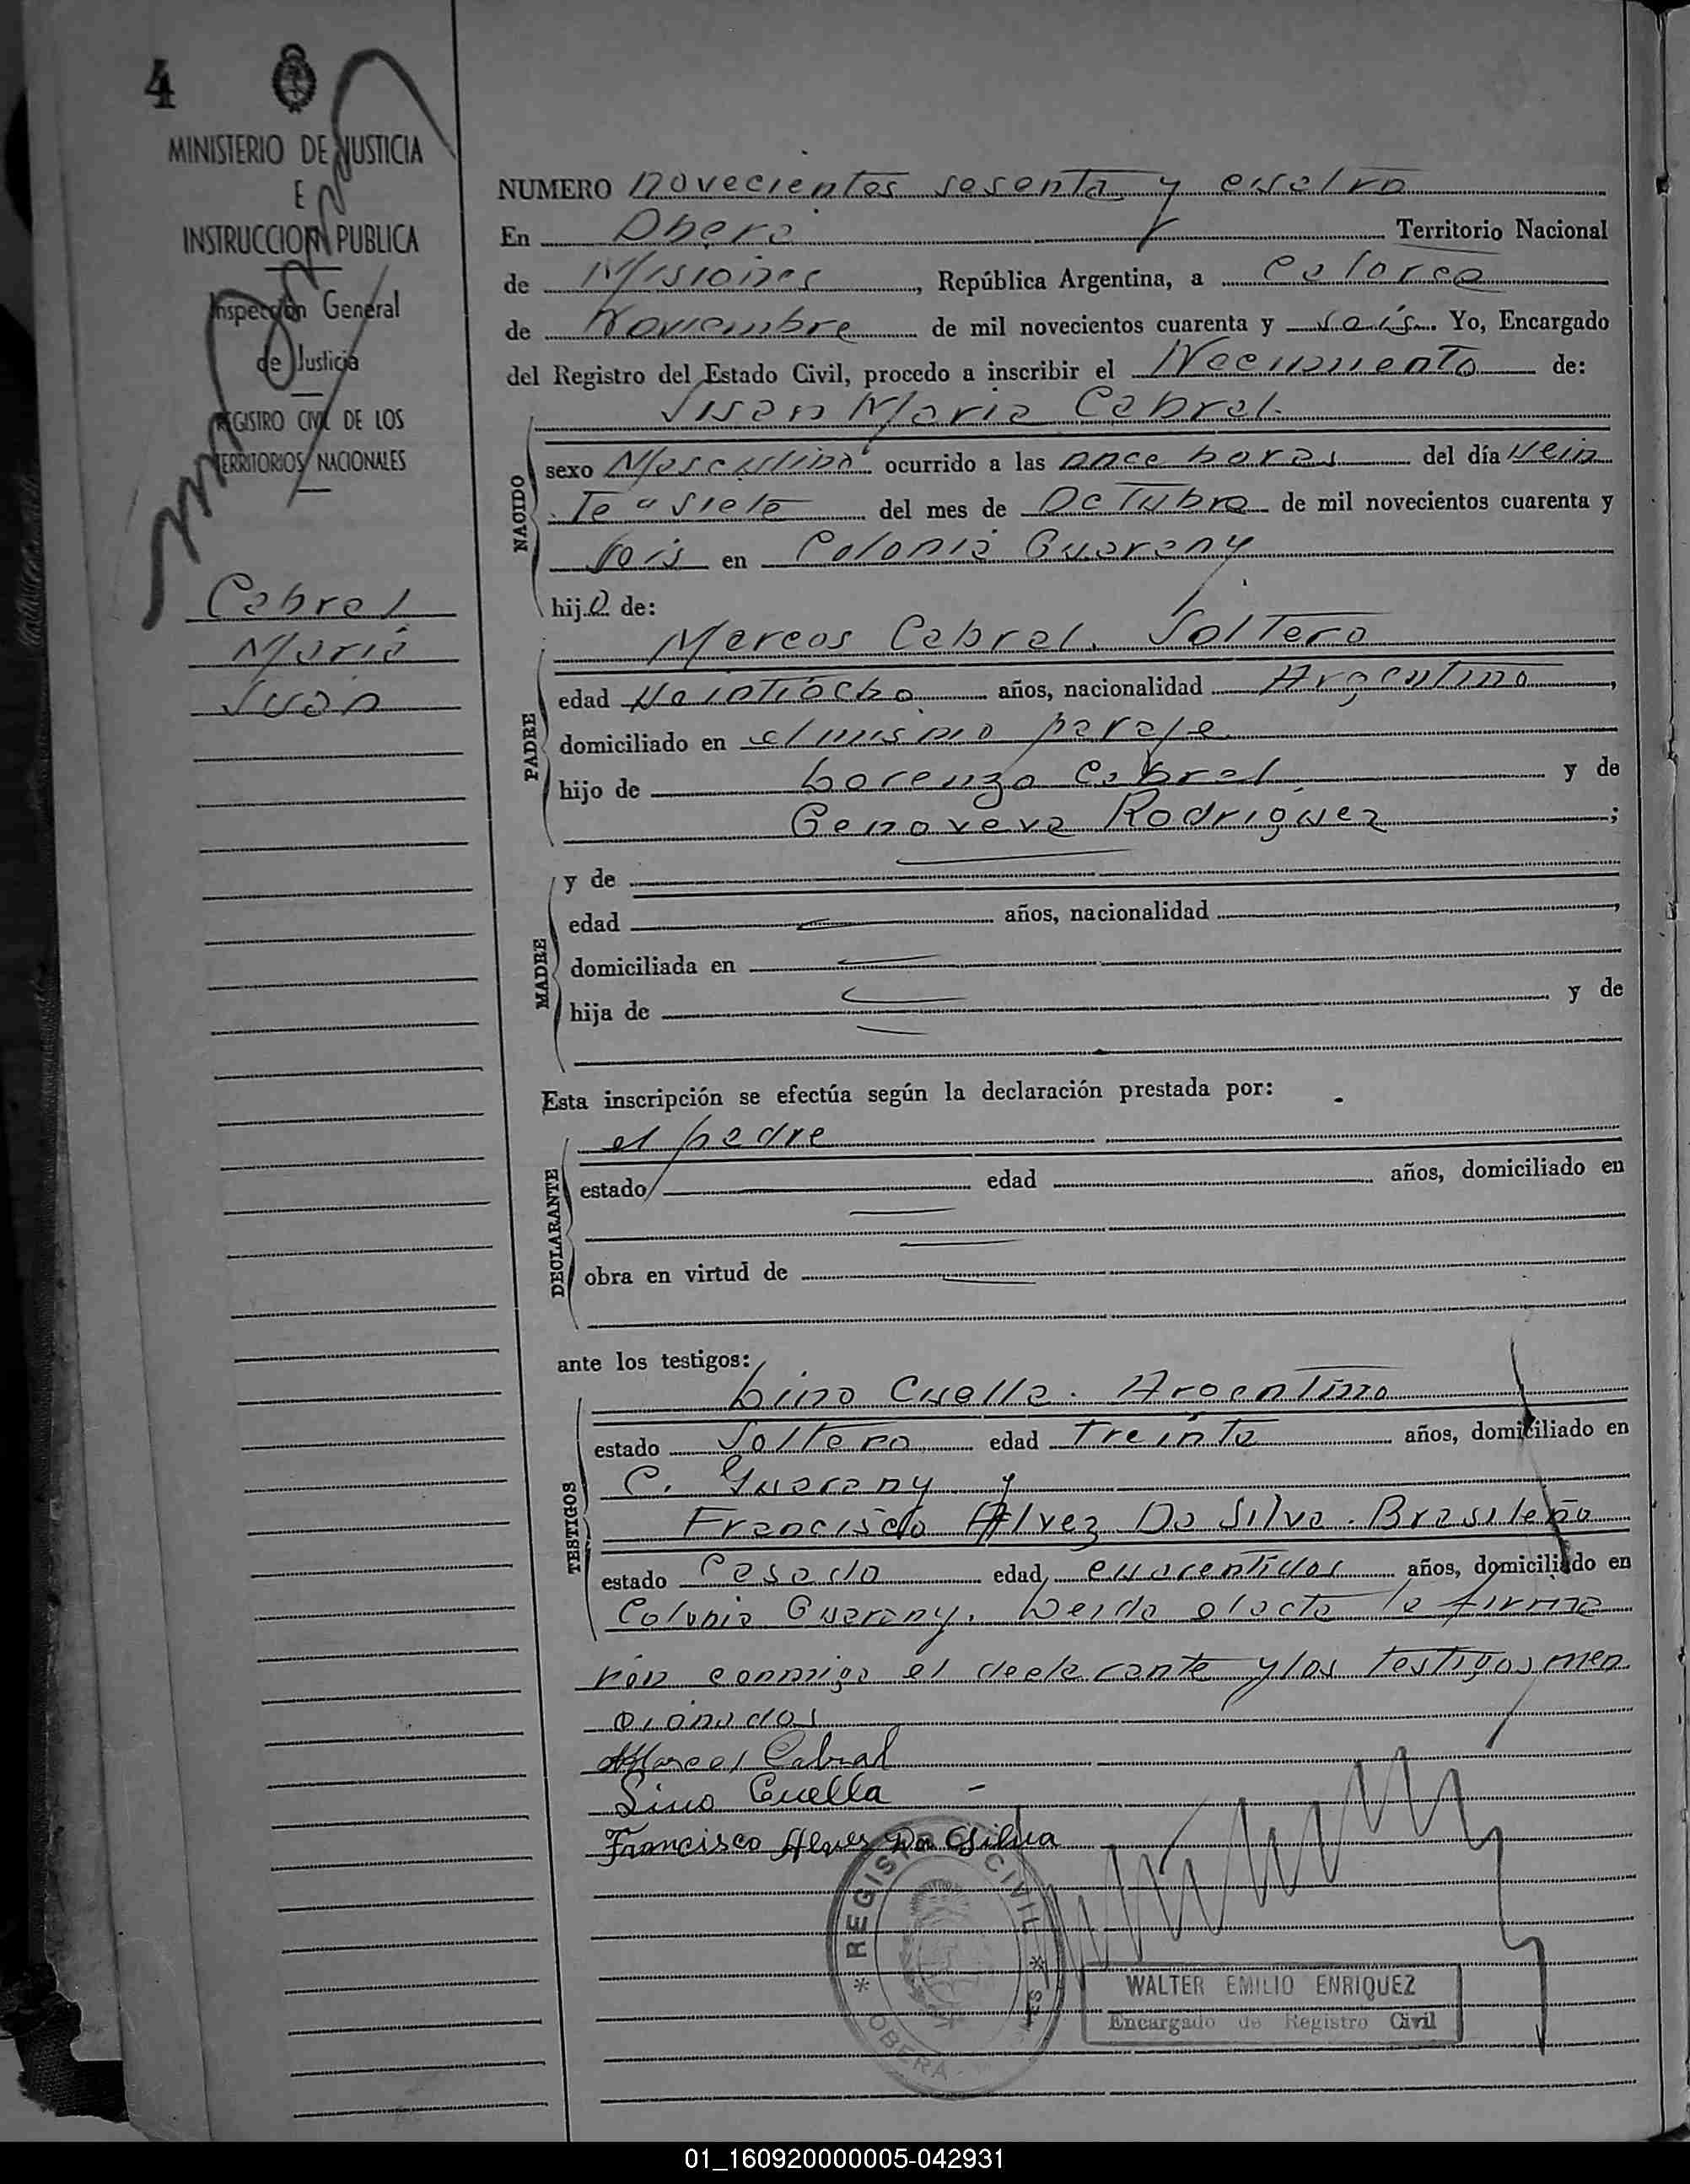 4
MINISTERIO DE JUSTICIA
E
INSTRUCCION PUBLICA
Inspección General
de Justicia
REGISTRO CIVIL DE LOS
TERRITORIOS NACIONALES
Cabral
Maria
Juan
NUMERO novecientos sesenta y cuatro
En Oberá Territorio Nacional
de Misiones, República Argentina, a catorce
de Noviembre de mil novecientos cuarenta y seis. Yo, Encargado
del Registro del Estado Civil, procedo a inscribir el Nacimiento de:
Juan Maria Cabral.
NACIDO
sexo Masculino ocurrido a las once horas del día Vein
te a siete del mes de Octubre de mil novecientos cuarenta y
seis en Colonia Guarany
hijo de:
Marcos Cabral. Soltero
PADRE
edad Veintiocho años, nacionalidad Argentino,
domiciliado en el mismo paraje
hijo de Lorenzo Cabral y de
Genoveva Rodriguez;
MADRE
y de
edad años, nacionalidad ,
domiciliada en
hija de y de
Esta inscripción se efectúa según la declaración prestada por:
el padre
DECLARANTE
estado edad años, domiciliado en
obra en virtud de
ante los testigos:
Lino Cuella. Argentino
TESTIGOS
estado Soltero edad treinta años, domiciliado en
C. Guarany y
Francisco Alvez Da Silva. Brasileño
estado Casado edad cuarentidos años, domiciliado en
Colonia Guarany. Leida el acta la firma
ron conmigo el declarante y los testigos men
cionados
Marcos Cabral
Lino Cuella
Francisco Alves Da Silva
* REGISTRO CIVIL *
OBERA
WALTER EMILIO ENRIQUEZ
Encargado de Registro Civil
01_160920000005-042931